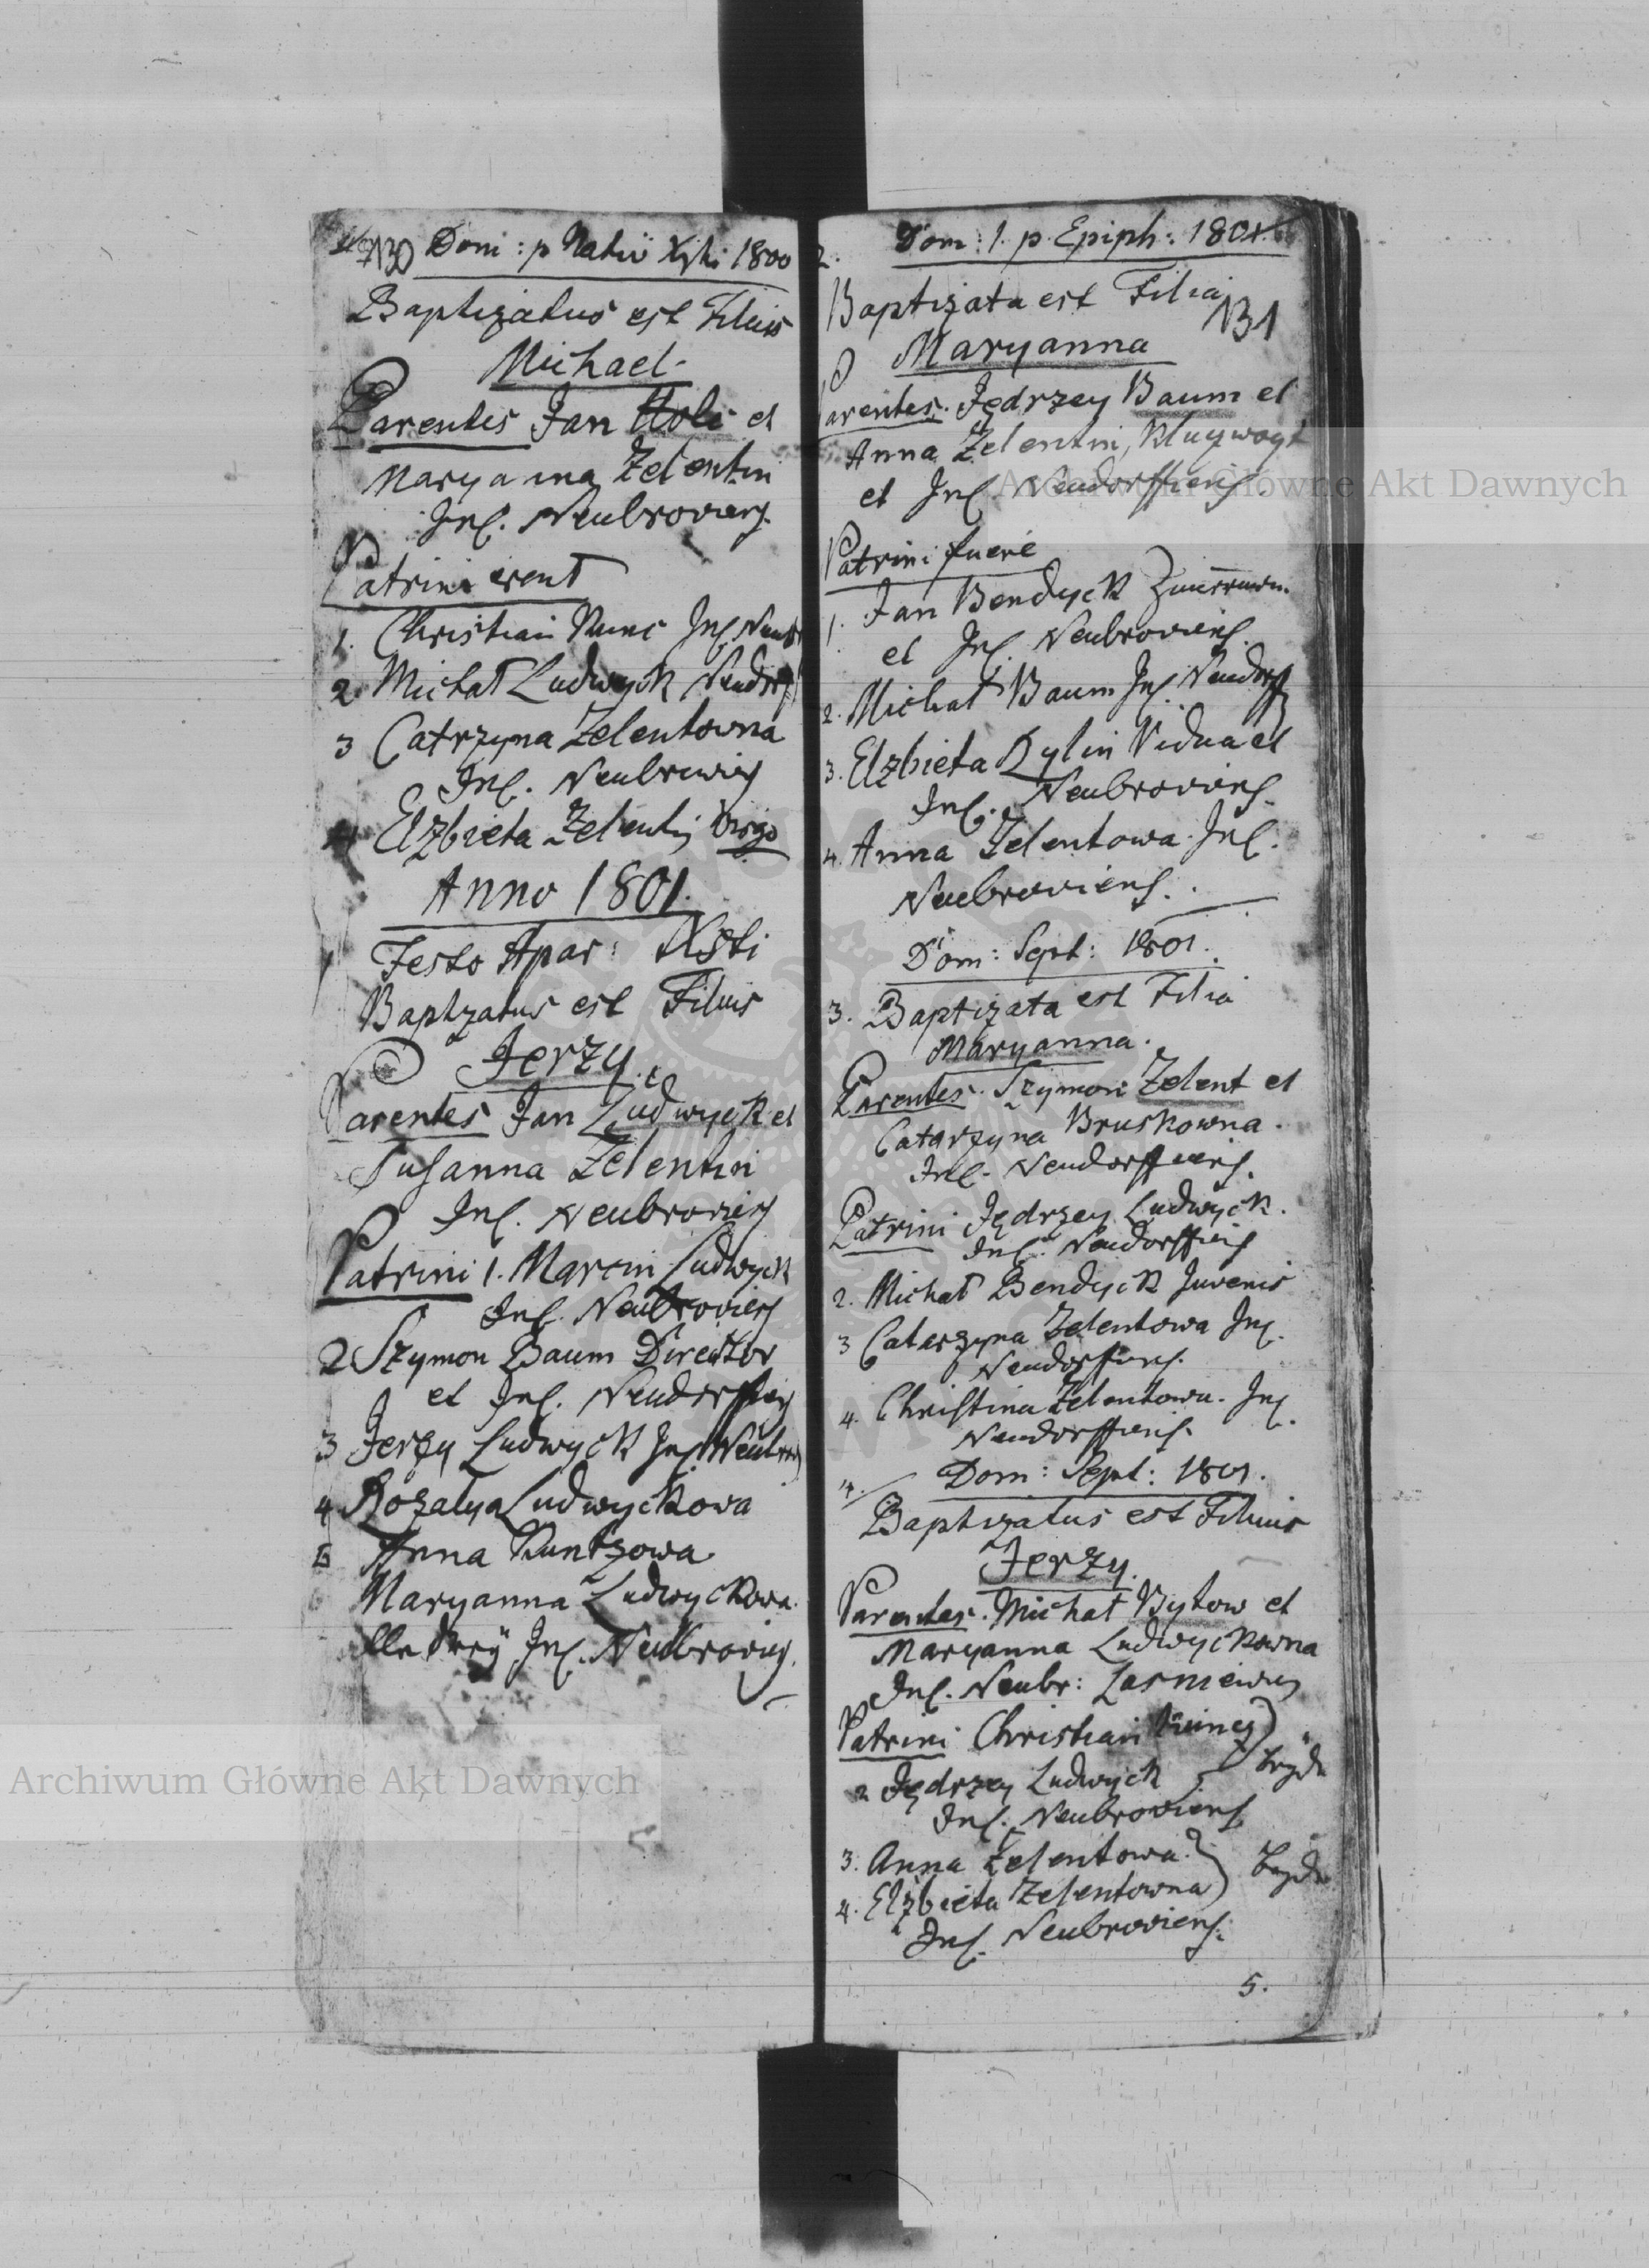 130 Dom: p Nativ Xsti 1800
Baptizatus est Filius
Michael
Parentes Jan Hole et
Maryanna Zelentin
Inc. Neubroviens.
Patrini erant
1. Christian Kunc Inc Neubr
2. Michał Ludwyck Neudorf
3 Catrzyna Zelentowna
Inc. Neubrowiens
4 Elzbieta Zelentin Virgo
Anno 1801.
1 Festo Apar: Xsti
Baptzatus est Filius
Jerzy.
Parentes Jan Ludwyck et
Susanna Zelentin
Inc. Neubroviens
Patrini 1. Marcin Ludwyck
Inc. Neubroviens
2 Szymon Baum Director
et Inc. Neudorffiens
3 Jerzy Ludwyck Inc Neubrov
4 Rozalya Ludwyckowa
5 Anna Kuntzowa
Maryanna Ludwyckowa.
Inc. Neubroviens.
2. Dom: 1. p. Epiph: 1801.
Baptizata est Filia
131
Maryanna
Parentes. Jędrzey Baum et
Anna Zelentin,
et Inc. Neudorffiens.
Patrini fuere
1. Jan Bendyck Zimerman.
et Inc. Neubroviens.
2. Michał Baum Inc. Neudorff
3. Elzbieta Rylin Vidua et
Inc. Neubroviens.
4. Anna Zelentowa Inc.
Neubroviens.
Dom: Sept: 1801.
3. Baptizata est Filia
Maryanna.
Parentes. Szymon Zelent et
Catarzyna Bruskowna.
Inc. Neudorffiens.
Patrini Jędrzey Ludwyck.
Inc. Neudorffiens
2. Michał Bendyck Juvenis
3 Catarzyna Zelentowa Inc.
Neudorffiens.
4. Christina Zelentowa. Inc.
Neudorffiens.
4. Dom: Sept: 1801.
Baptizatus est Filius
Jerzy.
Parentes. Michał Bytow et
Maryanna Ludwyckowna
Inc. Neubr:
Patrini Christian
2 Jędrzey Ludwyck
Inc. Neubroviens
3. Anna Zelentowa
4. Elżbieta Zelentowna
Inc. Neubroviens.
5.
Archiwum Główne Akt Dawnych
Archiwum Główne Akt Dawnych